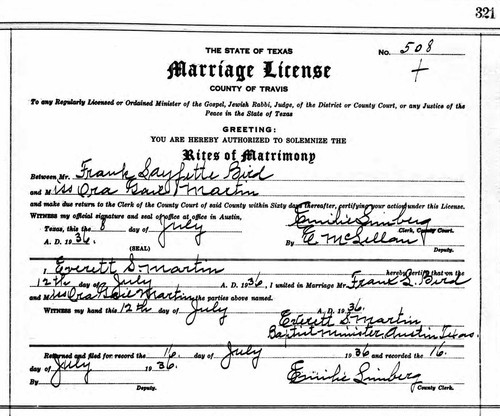 321
THE STATE OF TEXAS
No. 508
Marriage License
COUNTY OF TRAVIS
To any Regularly Licensed or Ordained Minister of the Gospel, Jewish Rabbi, Judge, of the District or County Court, or any Justice of the
Peace in the State of Texas
GREETING:
YOU ARE HEREBY AUTHORIZED TO SOLEMNIZE THE
Rites of Matrimony
Between Mr. Frank Layfette Bird
and Miss Ora Gail Martin
and make due return to the Clerk of the County Court of said County within Sixty days thereafter, certifying your action under this License.
WITNESS my official signature and seal of office at office in Austin, Emilie Limberg
Texas, this the 8 day of July Clerk, County Court.
A. D. 1936. By E. McLellan
(SEAL) Deputy.
I, Everett S. Martin hereby certify that on the
12th day of July A. D. 1936, I united in Marriage Mr. Frank L. Bird
and Miss Ora Gail Martin the parties above named.
WITNESS my hand this 12th day of July A. D. 1936.
Everett S. Martin
Baptist Minister, Austin, Texas.
Returned and filed for record the 16 day of July 1936 and recorded the 16.
day of July 1936. Emilie Limberg
By Deputy. County Clerk.